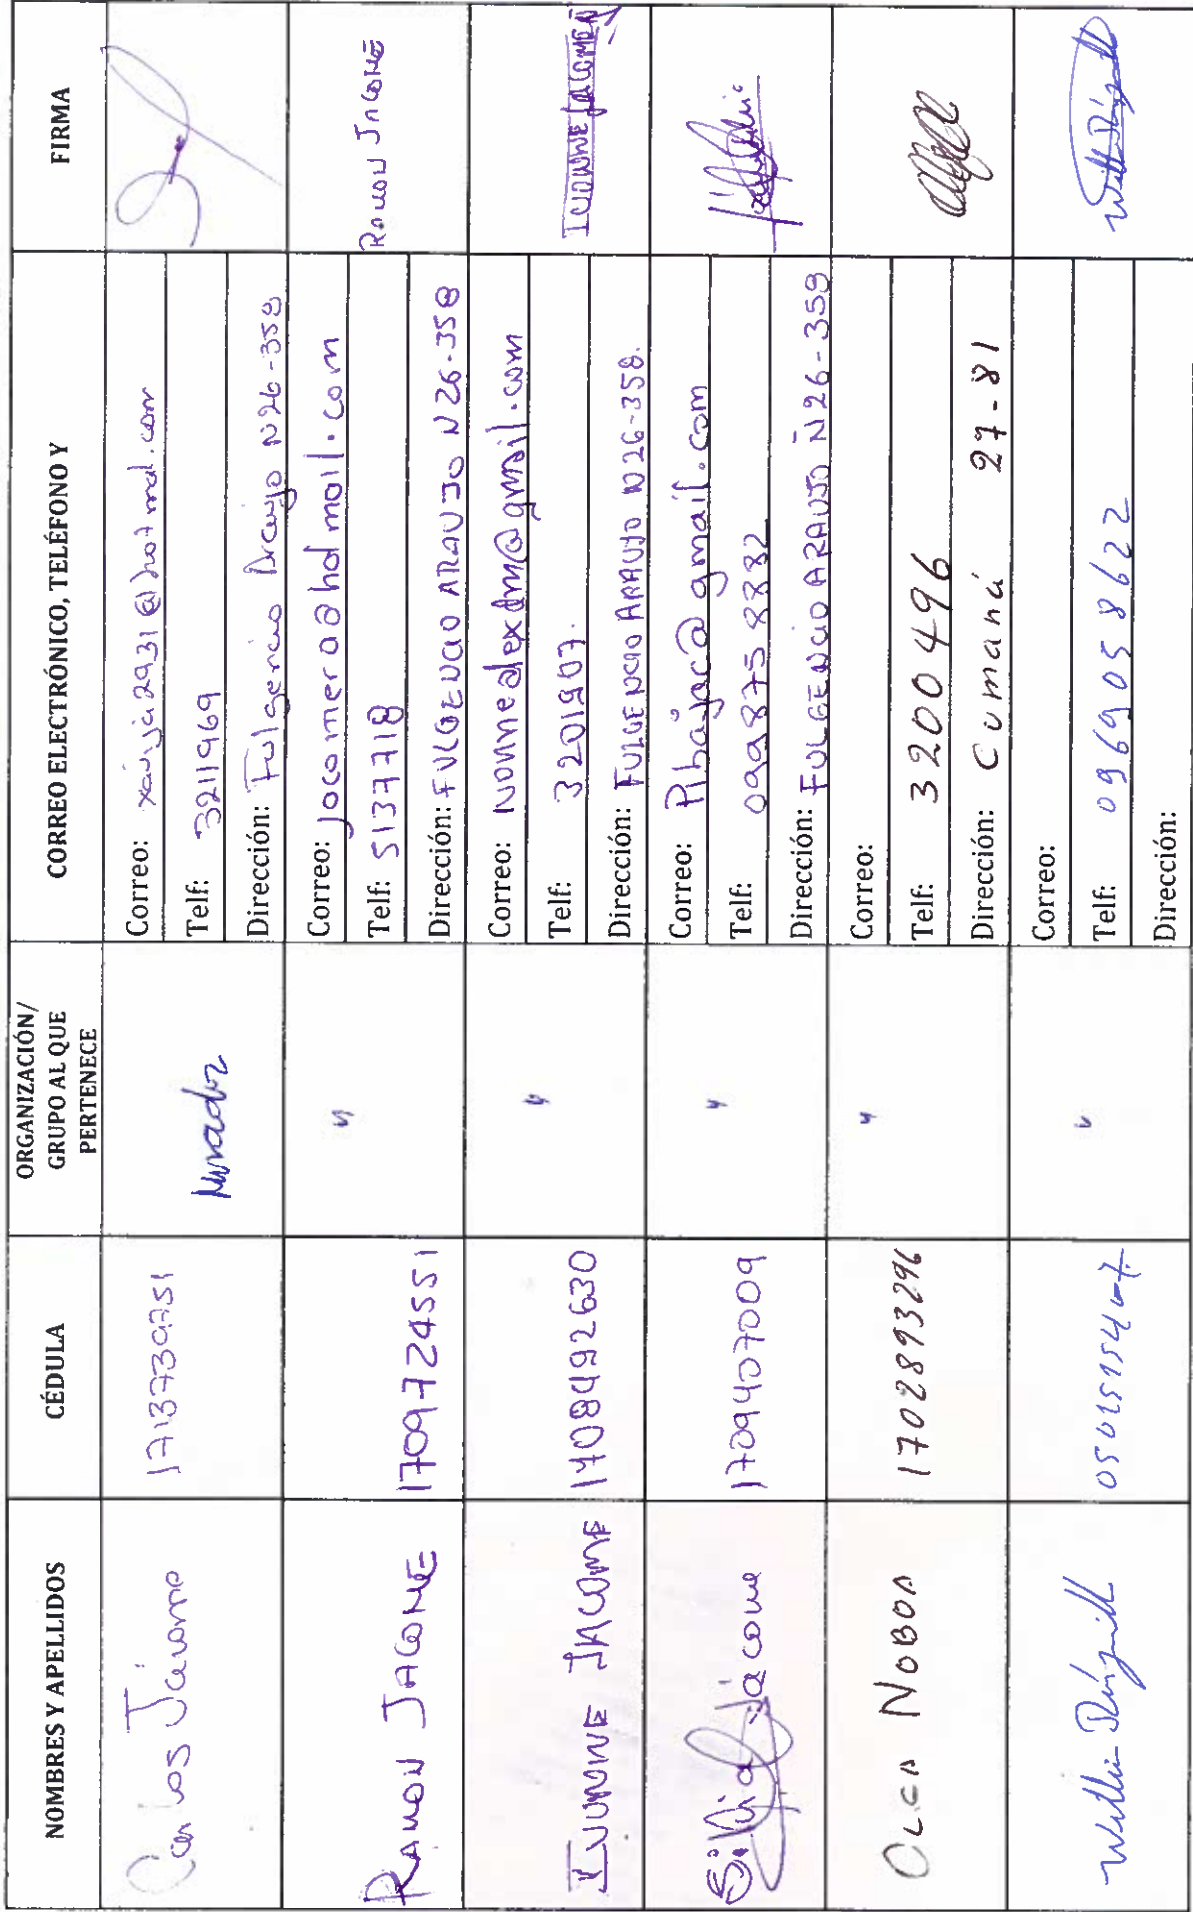 NOMBRES Y APELLIDOS
CÉDULA
ORGANIZACIÓN/
GRUPO AL QUE
PERTENECE
CORREO ELECTRÓNICO, TELÉFONO Y
FIRMA
Carlos Jácome
1713739751
Morador
Correo: xavija2931@hotmail.com
Telf: 3211969
Dirección: Fulgencio Araujo N26-358
RAMON JACOME
1709724551
"
Correo: jacomera@hotmail.com
Telf: 5137718
Dirección: FULGENCIO ARAUJO N26-358
RAMON JACOME
IVONNE JACOME
1708492630
"
Correo: ivonnealexdm@gmail.com
Telf: 3201907.
Dirección: FULGENCIO ARAUJO N26-358.
IVONNE JACOME
Silvia Jácome
1709407009
"
Correo: Plbajac@gmail.com
Telf: 0998758882
Dirección: FULGENCIO ARAUJO N26-359
OLGA NOBOA
1702893296
"
Correo:
Telf: 3200496
Dirección: Cumaná 27-81
"
Correo:
Telf: 0969058622
Dirección: